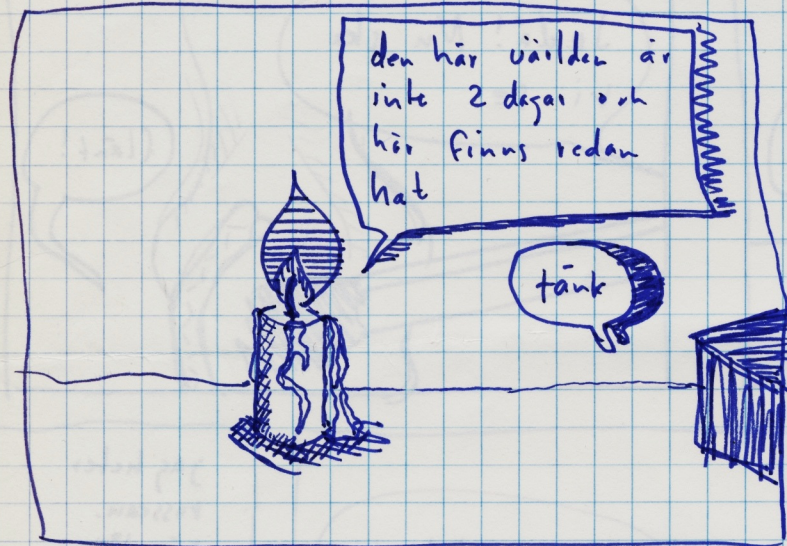 den här världen är
inte 2 dagar och
här finns redan
hat
tänk